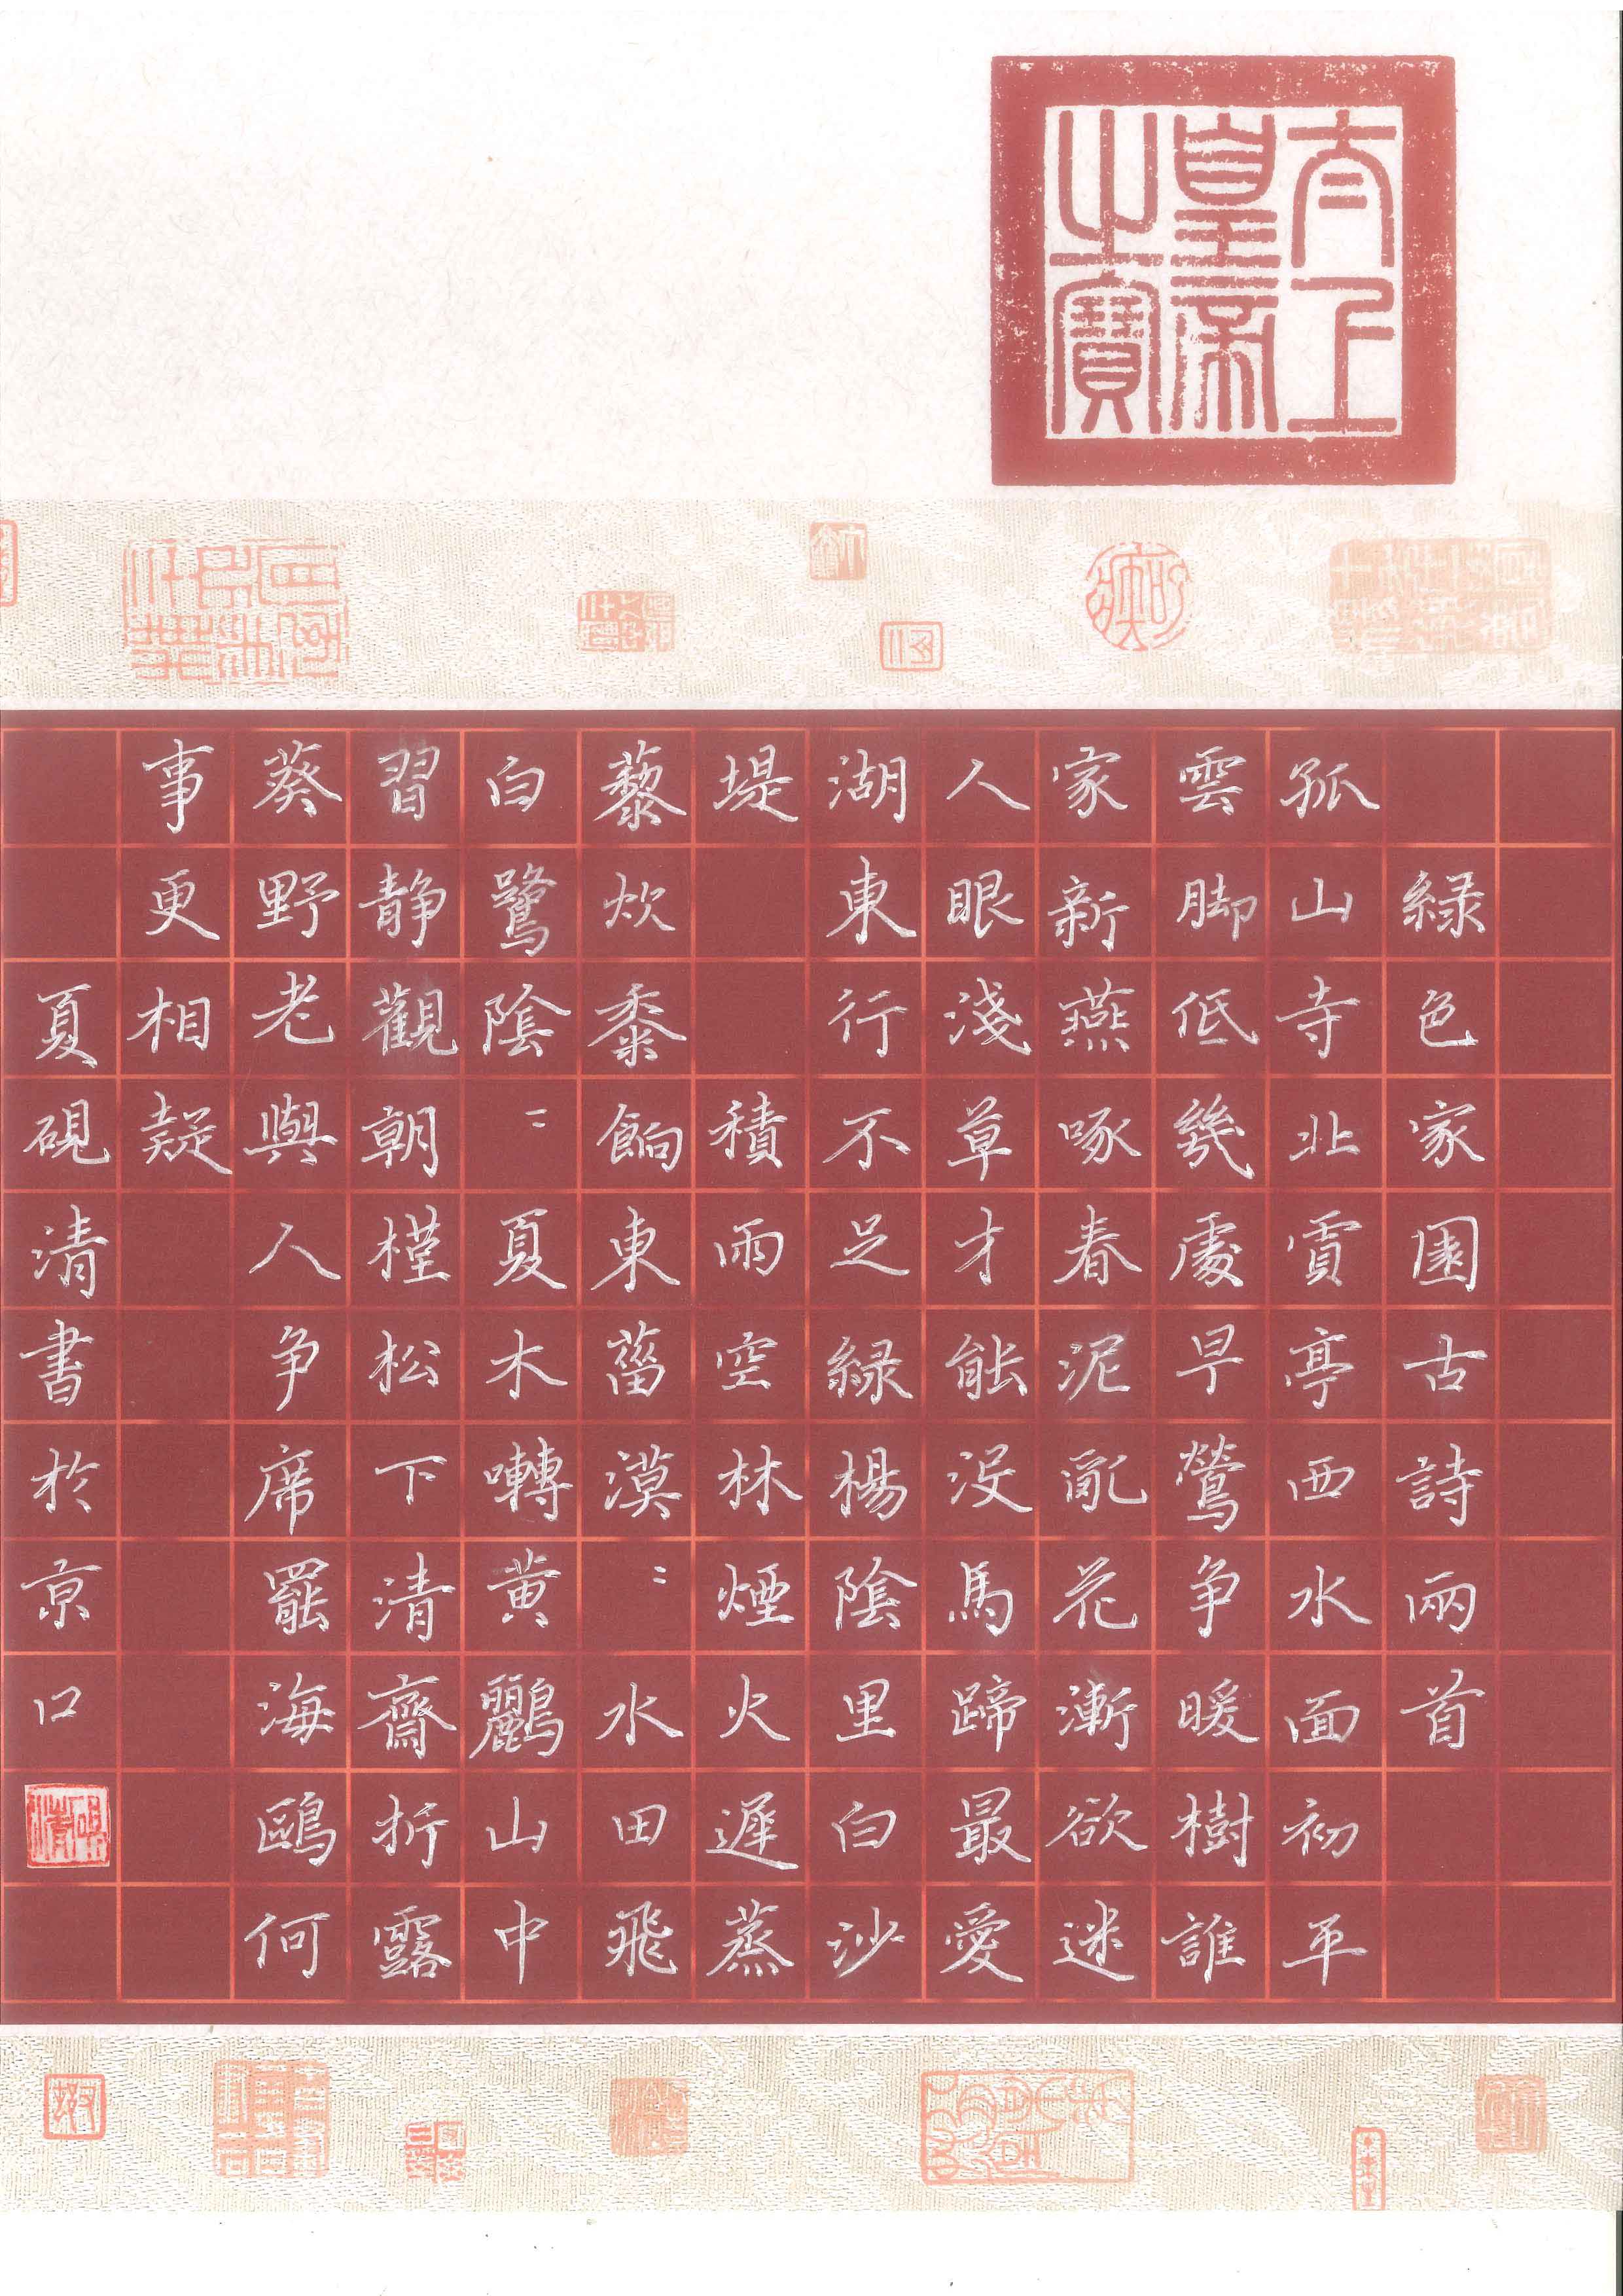 太上
皇帝
之寶
緑色家園古詩兩首
孤山寺北賈亭西水面初平
雲脚低幾處早鶯争暖樹誰
家新燕啄春泥亂花漸欲迷
人眼淺草才能没馬蹄最愛
湖東行不足緑楊陰里白沙
堤 積雨空林煙火遲蒸
藜炊黍餉東菑漠〻水田飛
白鷺陰〻夏木囀黄鸝山中
習静觀朝槿松下清齋折露
葵野老與人争席罷海鷗何
事更相疑
夏硯清書於京口
硯清